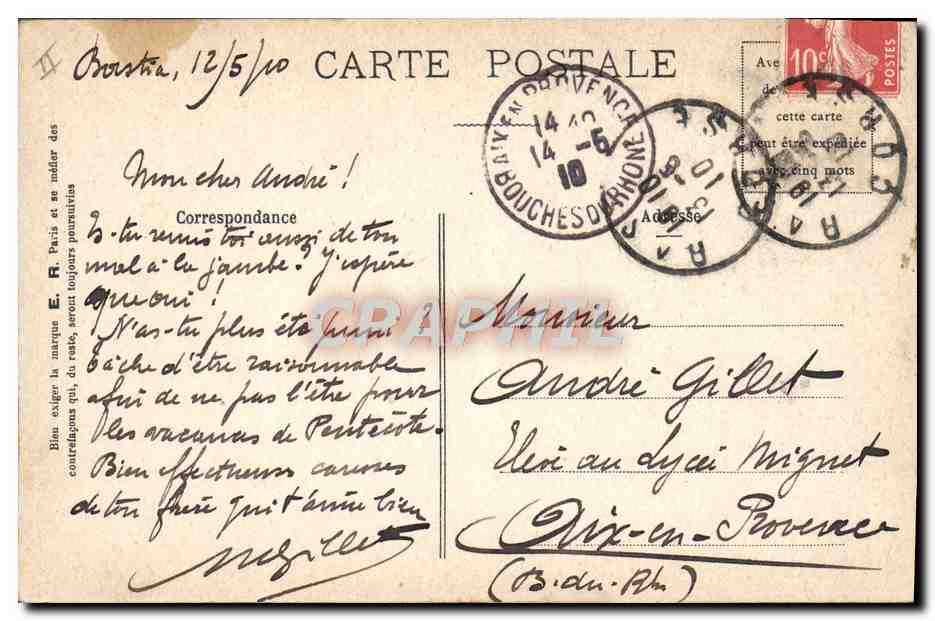 II
Bastia, 12/5/10
CARTE POSTALE
Mon cher André !
Correspondance
Es-tu remis toi aussi de ton
mal à la jambe ? J'espère
que oui !
N'as-tu plus été puni ?
Tâche d'être raisonnable
afin de ne pas l'être pour
les vacances de Pentecôte.
Bien affectueuses caresses
de ton frère qui t'aime bien
Gillet
Bien exiger la marque E. R. Paris et se méfier des
contrefaçons qui, du reste, seront toujours poursuivies
AIX EN PROVENCE
14 -5
10
BOUCHES DU RHONE
10c
POSTES
Ave
de
cette carte
peut être expédiée
avec cinq mots
Adresse
CORSE
Monsieur
André Gillet
Elève au Lycée Mignet
Aix-en-Provence
(B.-du-Rh)
CPAPHIL